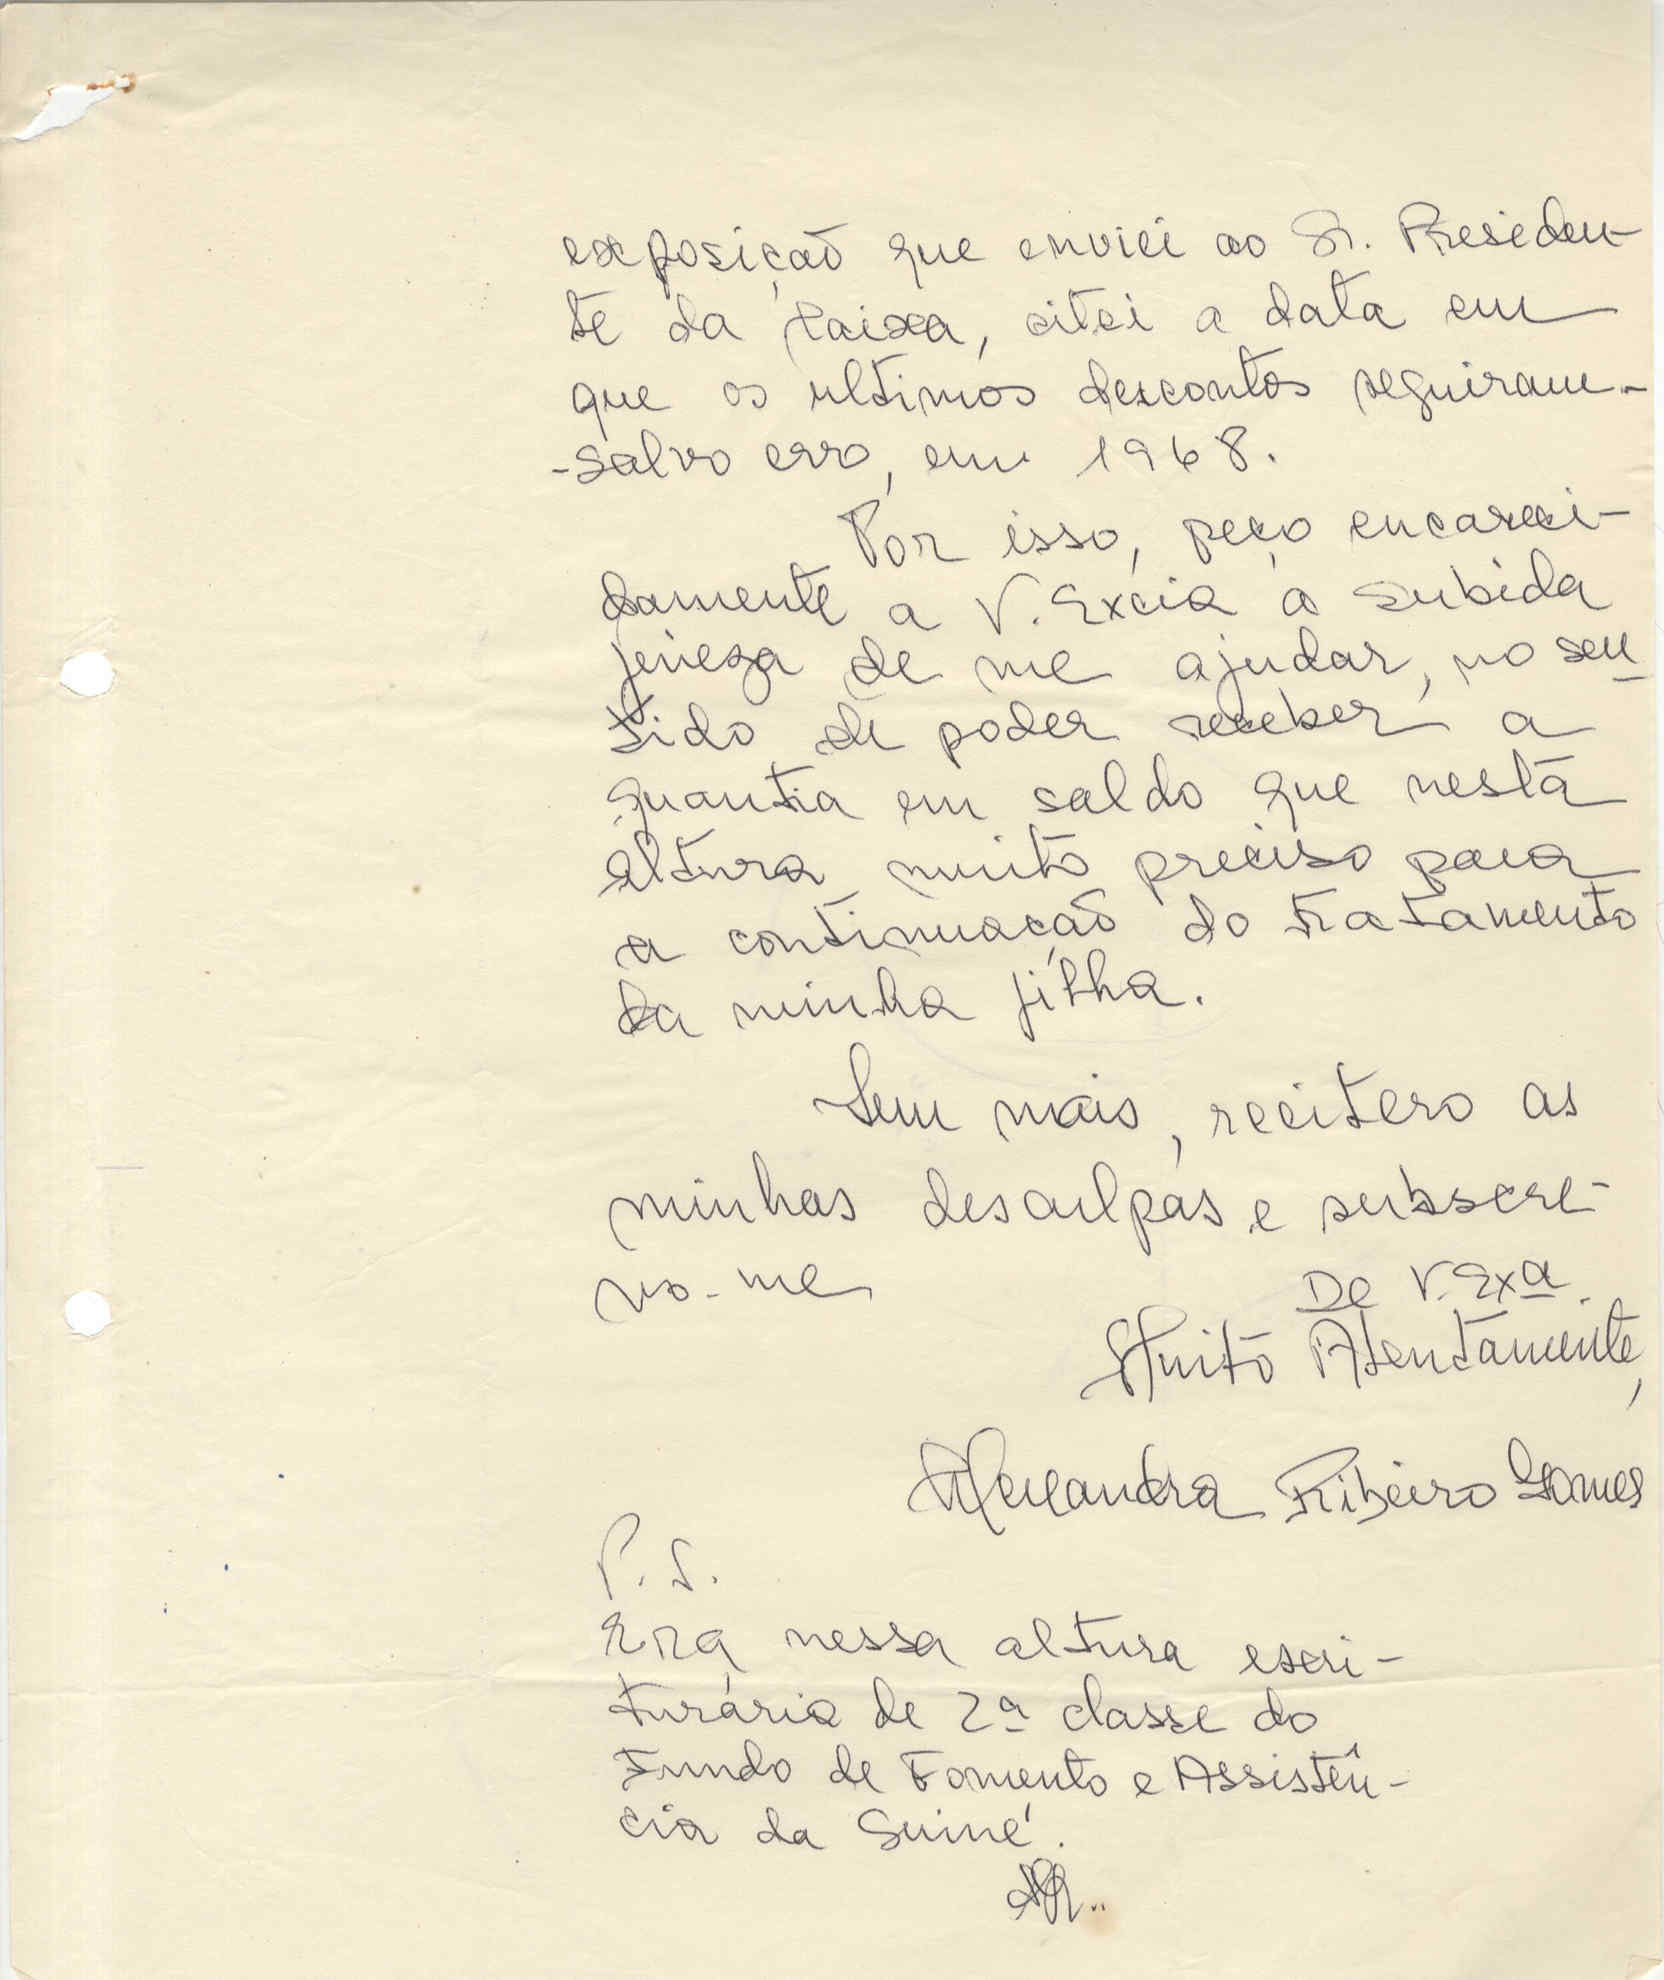 exposição que enviei ao Sr. Presiden-
te da Caixa, citei a data em
que os ultimos descontos seguiram-
-salvo erro, em 1968.
Por isso, peço encareci-
damente a V. Excia a subida
fineza de me ajudar, no sen
tido de poder receber a
quantia em saldo que nesta
altura muito preciso para
a continuação do tratamento
da minha filha.
Sem mais, reitero as
minhas desculpas e subscre-
vo-me
De V. Exª.
Muito Atentamente,
Alexandra Ribeiro Gomes
P.S.
Era nessa altura escri-
turária de 2ª classe do
Fundo de Fomento e Assistên-
cia da Guiné.